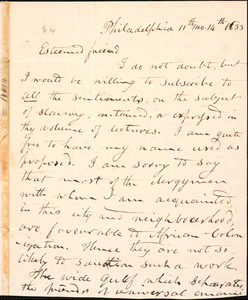 84
Philadelphia 11th mo. 14th 1833
Esteemed friend
I do not doubt, but
I would be willing to subscribe to
all the sentiments, on the subject
of slavery, contained, or expressed in
thy volume of lectures. I am quite
free to have my name used as
proposed. I am sorry to say
that most of the clergymen
with whom I am acquainted,
in this city and neighbourhood,
are favourable to African Colon
ization. Hence they are not so
likely to sanction such a work.
The wide gulf which separates
the friends of universal emanci